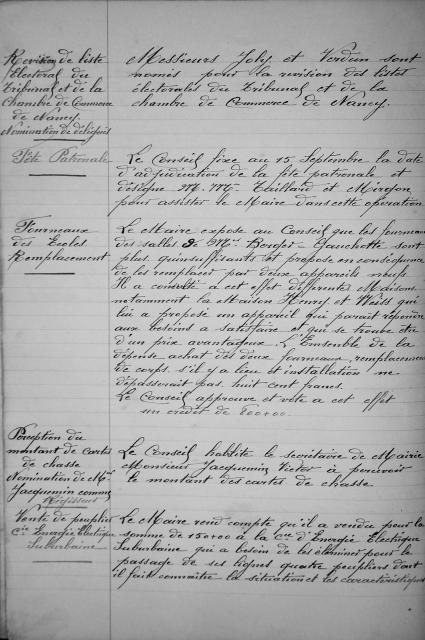 Revision de liste
Electoral du
Tribunal et de la
Chambre de Commerce
de Nancy.
Nomination de délégués
Messieurs Joly et Verdun sont
només pour la revision des listes
électorales du Tribunal et de la
chambre de Commerce de Nancy.
Fête Patronale
Le Conseil fixe au 15 Septembre la date
d'adjudication de la fête patronale et
désigne M. M. Thillard et
pour assister le Maire dans cette opération
Fourneaux
des Ecoles
Remplacement
Le Maire expose au Conseil que les fourneaux
des salles de Berger Gauchotte sont
plus qu'insuffisants et propose en conséquence
de les remplacer par deux appareils neufs.
Il a consulté a cet effet differentes Maisons
notamment la Maison Henry et Weiss qui
lui a proposé un appareil qui parait répondre
aux besoins a satisfaire et qui se trouve être
d'un prix avantageux. L'Ensemble de la
dépense achat des deux fourneaux, remplacement
de corps s'il y a lieu et installation ne
dépasserait pas huit cent francs.
Le Conseil approuve et vote a cet effet
un crédit de 800.00.
Perception du
montant de Cartes
de chasse
Nomination de Mr
Jacquemin comme
Régisseur
Le Conseil habilite le secrétaire de Mairie
Monsieur Jacquemin Victor à percevoir
le montant des cartes de chasse
Vente de peupliers
Cie Energie Electrique
Suburbaine
Le Maire rend compte qu'il a vendu pour la
somme de 150.00 à la Cie d'Energie Electrique
Suburbaine qui a besoin de les éliminer pour le
passage de ses lignes quatre peupliers dont
il fait connaitre la situation et les caractéristiques